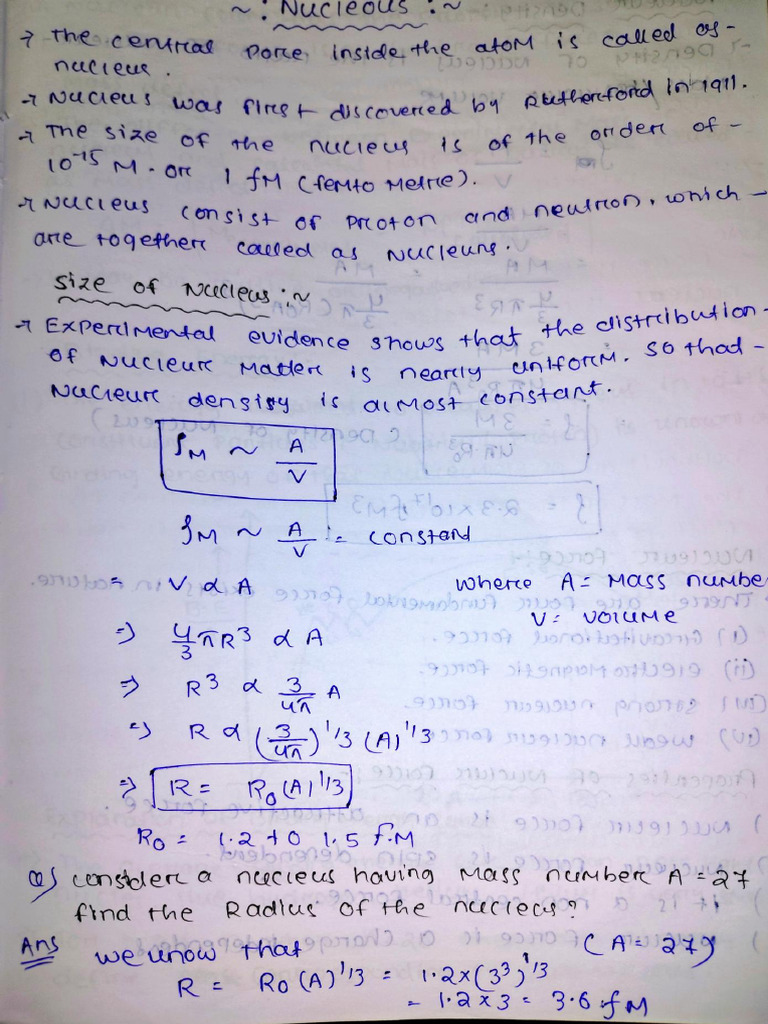 ~: Nucleous :~
→ The central porce inside the atom is called as-
nucleus.
→ Nucleus was first discovered by Rutherford in 1911.
→ The size of the nucleus is of the order of -
10⁻¹⁵ M. or 1 fM (femto Metre).
→ Nucleus consist of proton and neutron, which -
are together called as Nucleuns.
size of Nucleus :~
→ Experimental evidence shows that the distribution -
of Nuclear Matter is nearly uniform. so that -
Nuclear density is almost constant.
ρM ~ A/V
ρM ~ A/V = constant
= V ∝ A where A = Mass number
V = volume
⇒ 4/3 πR³ ∝ A
⇒ R³ ∝ 3/4π A
⇒ R ∝ (3/4π)^1/3 (A)^1/3
⇒ R = R₀ (A)^1/3
R₀ = 1.2 to 1.5 f.M
Q) consider a nucleus having Mass number A = 27
find the Radius of the nucleus?
Ans we know that (A = 27)
R = R₀ (A)^1/3 = 1.2 × (3³)^1/3
= 1.2 × 3 = 3.6 fM